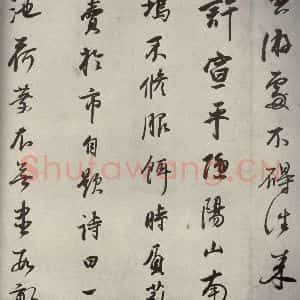 游處不礙往来
許宣平隱陽山南
塢不修服餌時負薪
賣於市自題詩曰一
池荷葉衣無盡數畝
Shufawang.Cn